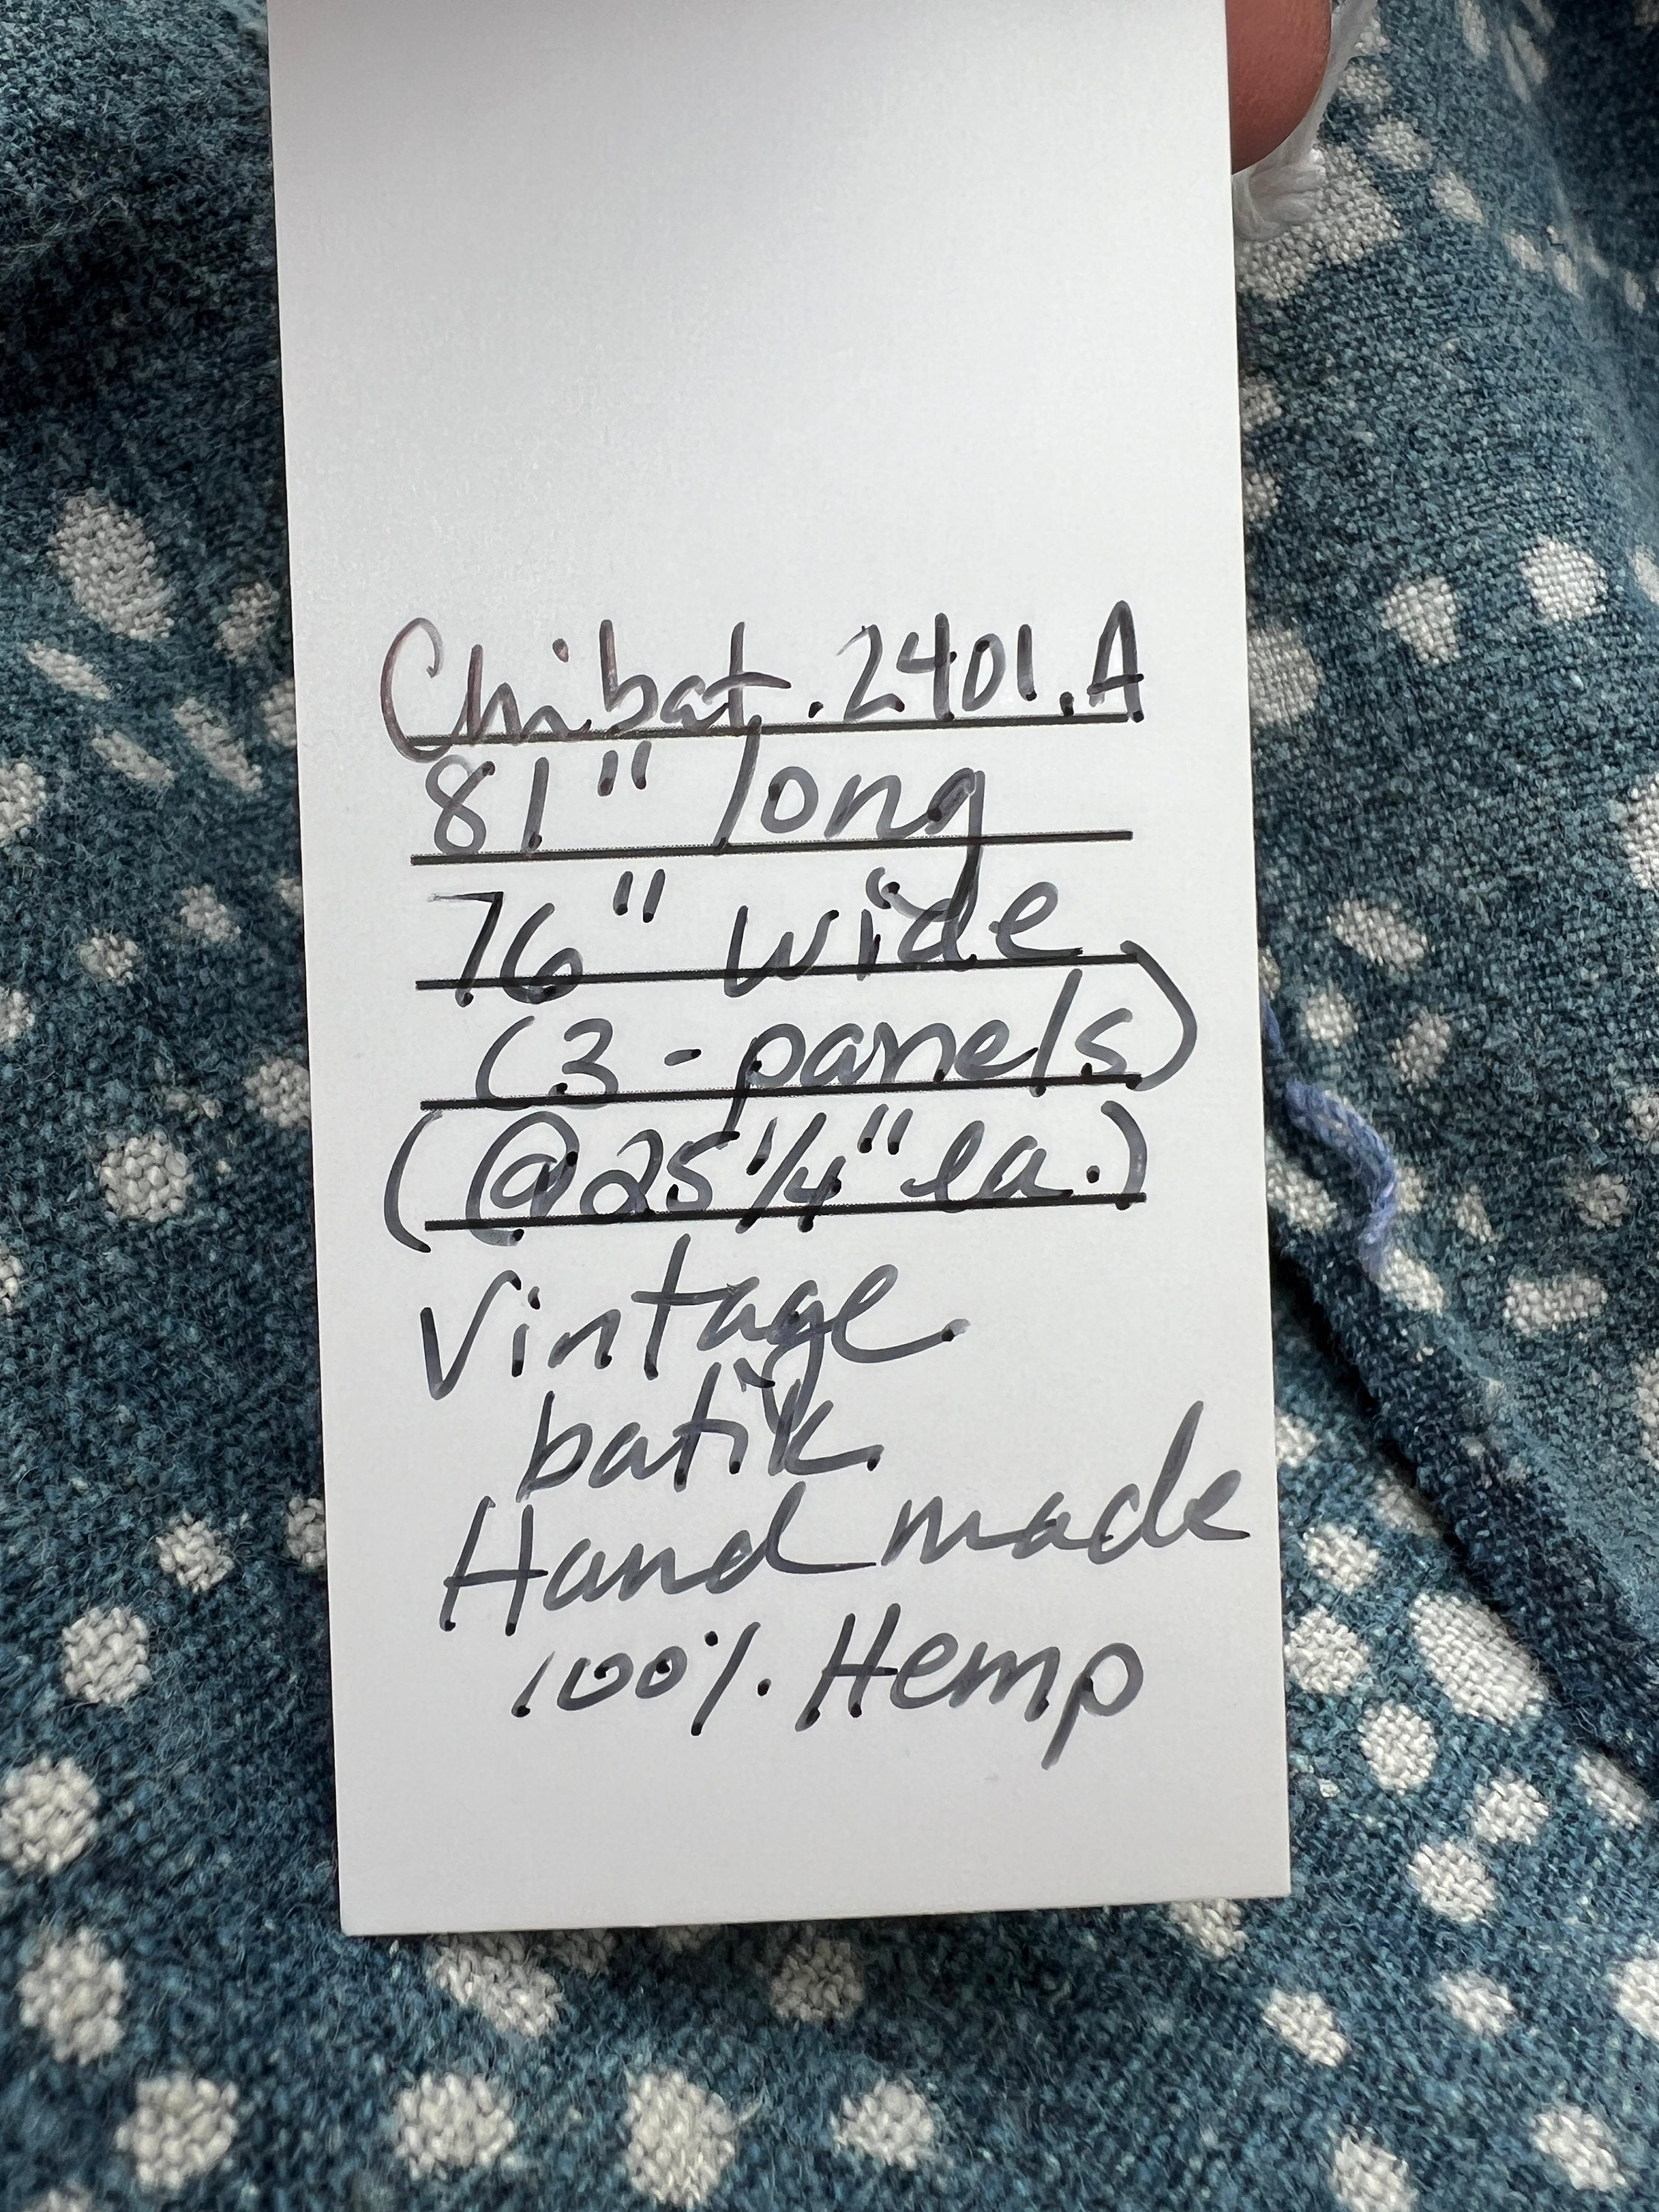 Chibat.2401.A
81" long
76" wide
(3-panels)
(@25 1/4" ea.)
Vintage
batik
Hand made
100% Hemp